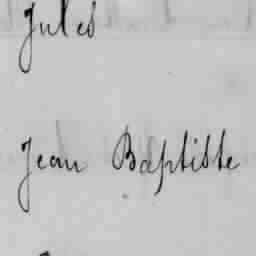 Jules
Jean Baptiste